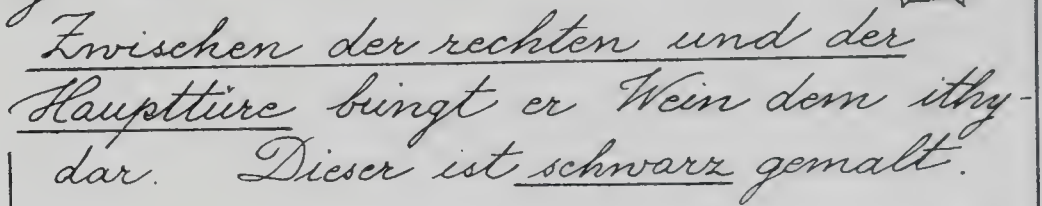 Zwischen der rechten und der
Haupttüre bringt er Wein dem ithy-
dar. Dieser ist schwarz gemalt.